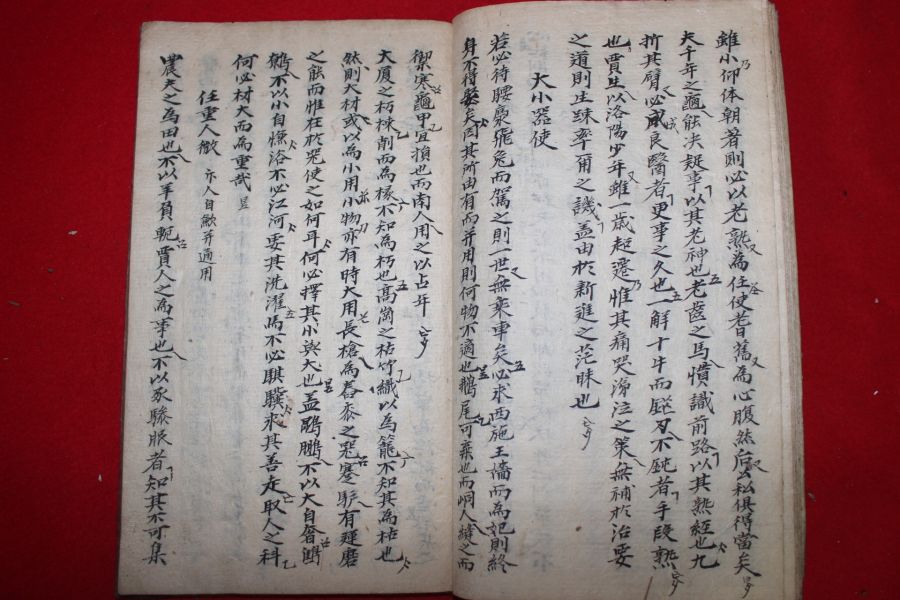 雖小仰体朝著則必以老熟為任使耆舊為心腹然后公私俱得當矣
夫千年之龜能决疑事以其老神也老齒之馬慣識前路以其熟經也九
折其臂必成良醫者更事之久也一解十牛而鋋刃不鈍者手段熟
也賈生以洛陽少年雖一歲超遷惟其痛哭涕泣之策無補於治要
之道則生踈率爾之譏盖由於新進之茫昧也
大小器使
若必待腰褭飛兎而駕之則一世無乘車矣必求西施王嬙而為妃則終
身不得娶矣因其所由有而并用則何物不適也鵝尾可棄也而峒人緯之而
禦寒龜甲宜損也而南人用之以占年
大厦之朽棟削而為椽不知為朽也高崗之枯竹織以為籠不知其為枯也
然則大材或以為小用小物亦有時大用長槍為舂黍之器蹇驢有運磨
之能而惟在於器使之如何耳何必擇其小與大也盖鵾鵬不以大自奢鷃
鷦不以小自慊浴不必江河要其洗濯馬不必騏驥求其善走取人之科
何必材大而為重哉
任重人歃 亦入自歃并適用
農夫之為田也不以羊負軛賈人之為事也不以豕驂服者知其不可集